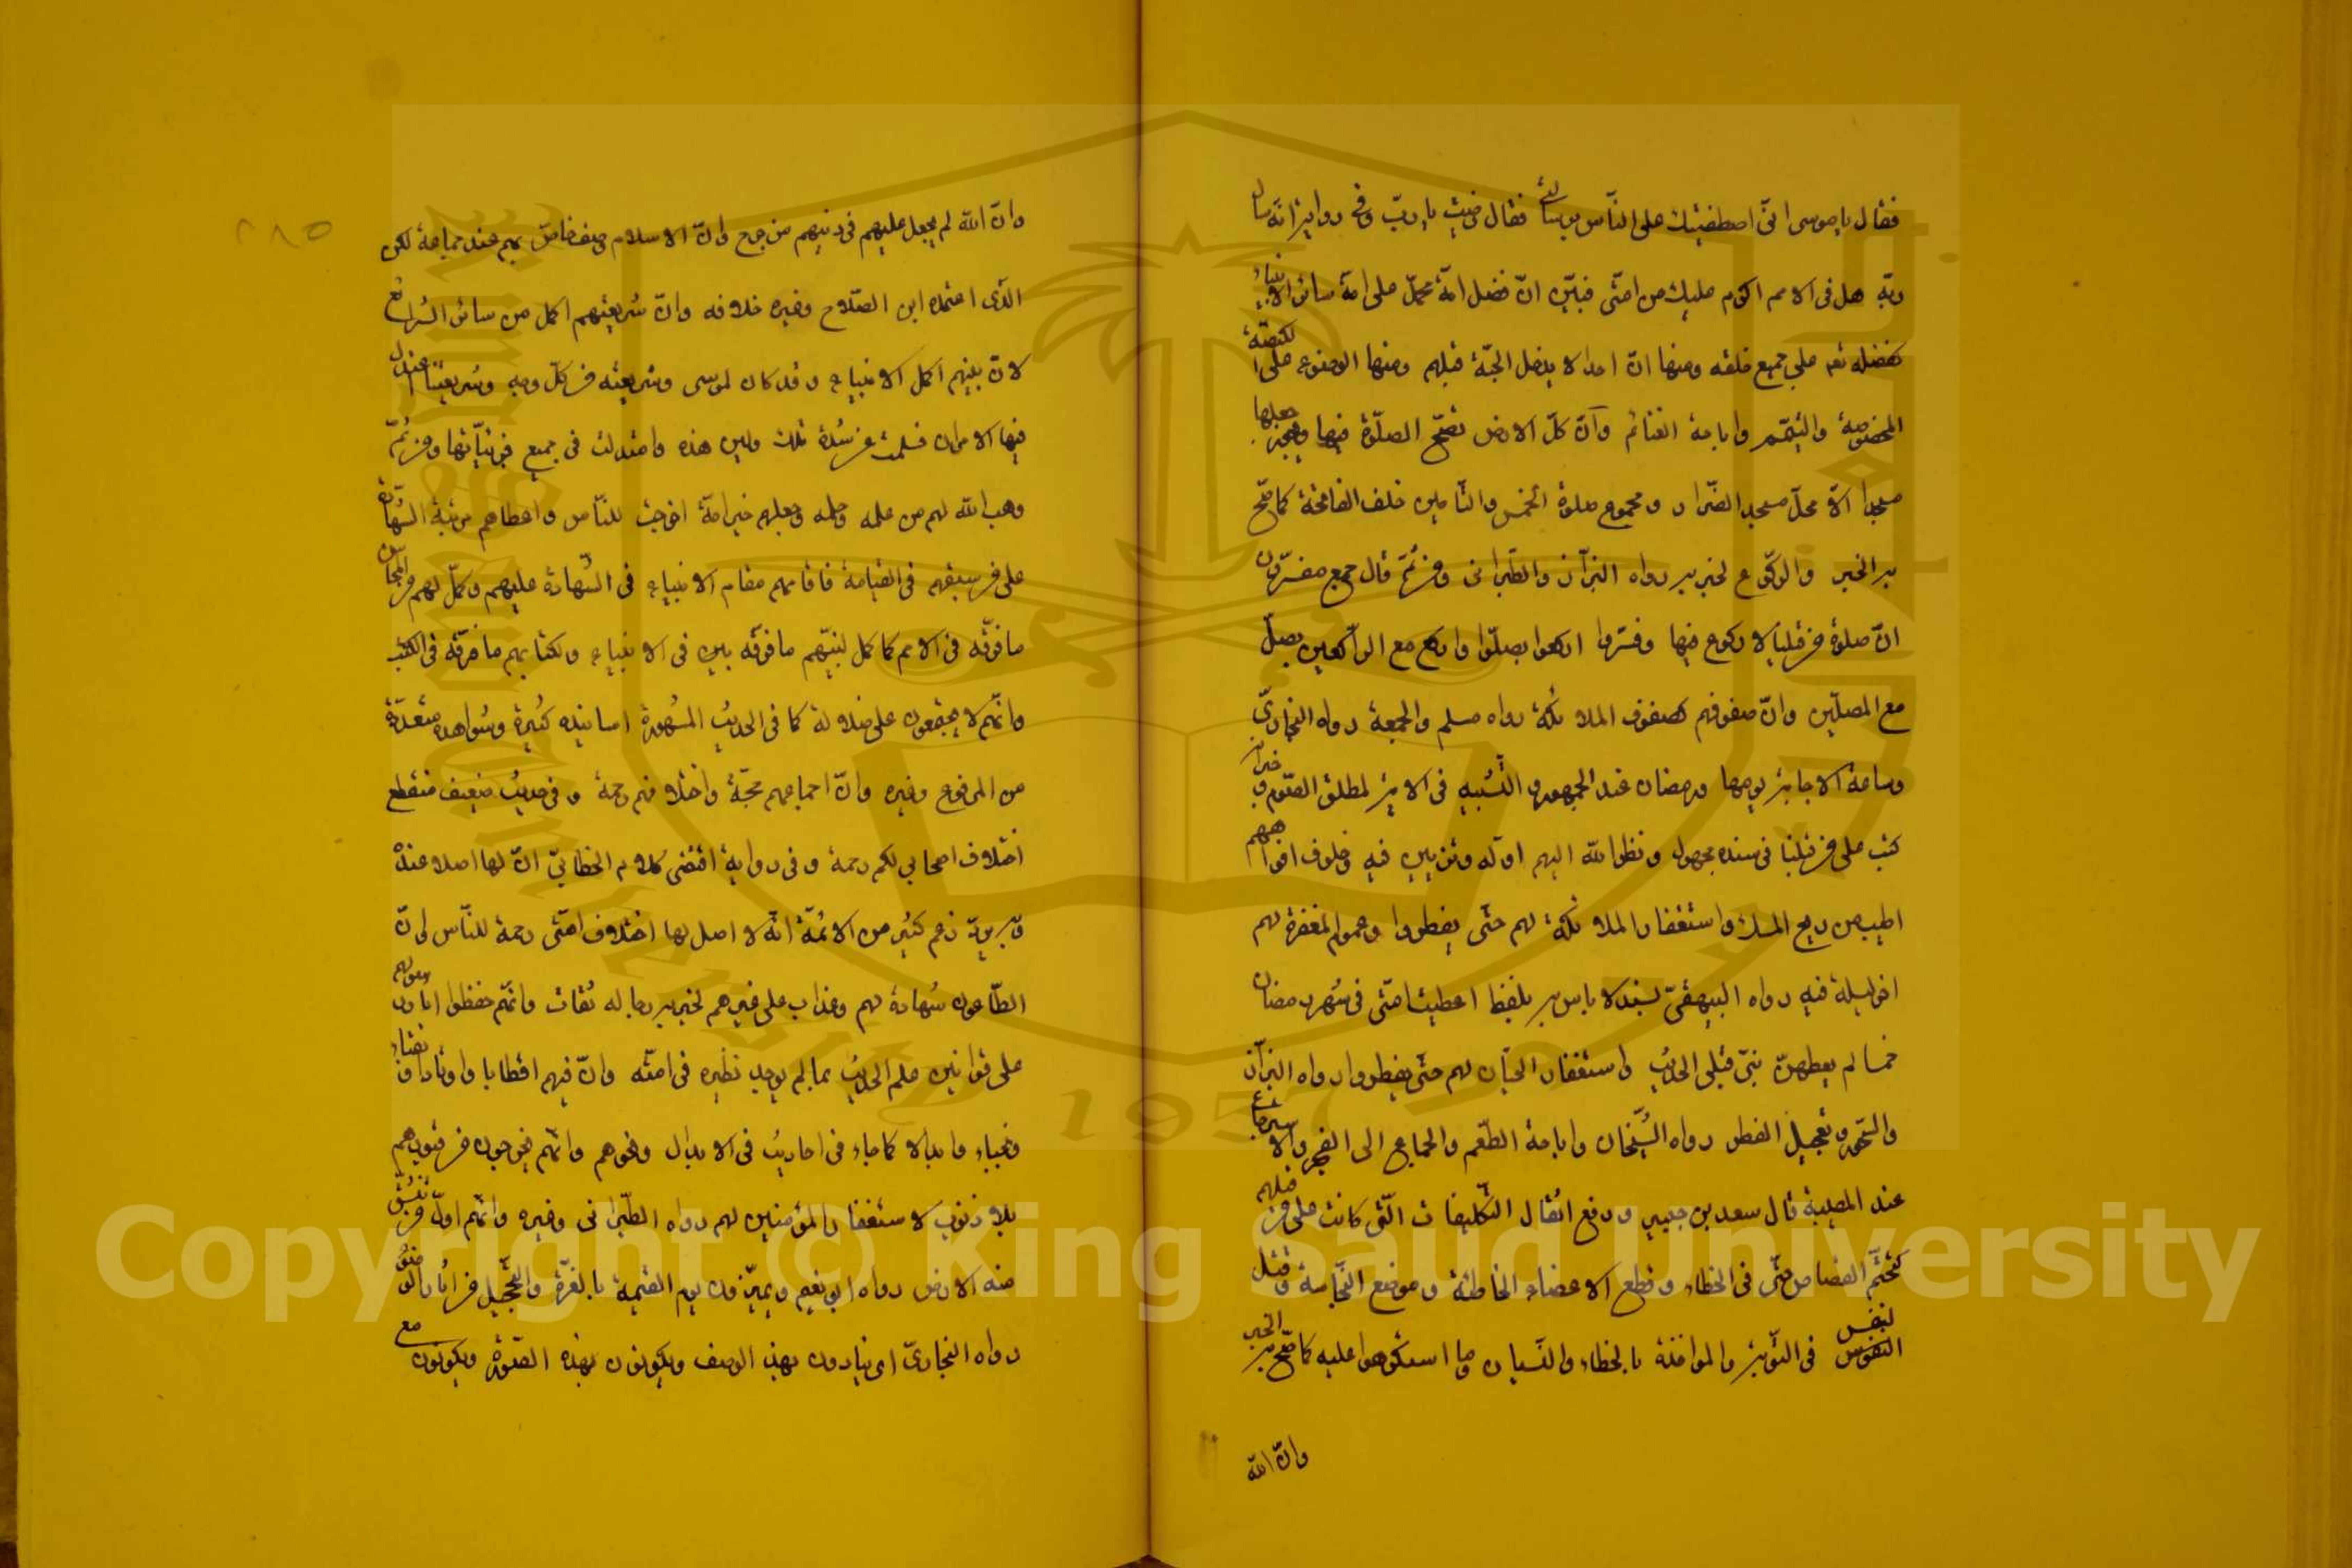 فقال يا موسى انّى اصطفيتك على الناس برسالتى فقال رضيت يا ربّ وفى رواية انه سال
ربّه هل فى الامم اكرم عليك من امتى فبيّن انّ فضل امّة محمّد على امة سائر الانبياء
كفضله تعه على جميع خلقه ومنها انّ احدا لا يدخل الجنّة قبلهم ومنها الوضوء على الكيفيّة
المخصوصة والتيمّم واباحة الغنائم وانّ كلّ الارض تصحّ الصلوة فيها ويجوز جعلها
مسجدا الاّ محلّ مسجد الضّرار ومجموع صلوة الخمس والتأمين خلف الفاتحة كما صحّ
به الخبر والركوع لخبر به رواه البزّار والطّبرانى ومن ثمّ قال جمع مفسّرون
انّ صلوة من قبلنا لا ركوع فيها وفسّروا اركعوا بصلّوا واركع مع الراكعين بصلّ
مع المصلّين وانّ صفوفهم كصفوف الملائكة رواه مسلم والجمعة رواه البخارىّ
وساعة الاجابة بيومها ورمضان عند الجمهور والتّشبيه فى الاية لمطلق الصّوم وخبران
كتب على من قبلنا فى سنده مجهول ونظر الله اليهم اوّله وتزيين فيه وخلوف افواههم
اطيب من ريح المسك واستغفار الملائكة لهم حتّى يفطروا وعموم المغفرة لهم
اخر ليلة فيه رواه البيهقىّ بسند لا باس به بلفظ اعطيت امّتى فى شهر رمضان
خمسا لم يعطهنّ نبىّ قبلى الحديث واستغفار الحيتان لهم حتّى يفطروا رواه البزّار
والسّحور وتعجيل الفطر رواه الشّيخان واباحة الطّعم والجماع الى الفجر والاسترجاع
عند المصيبة قال سعد بن جبير ورفع اثقال التّكليفات الّتى كانت على من قبلهم
كتحتّم القصاص حتّى فى الخطاء وقطع الاعضاء الخاطئة وموضع النّجاسة وقتل
النفس فى التّوبة والمواخذة بالخطاء والنّسيان وما استكرهوا عليه كما صحّ به الخبر
وانّ الله
وانّ الله لم يجعل عليهم فى دينهم من حرج وانّ الاسلام وصف خاصّ بهم عند جماعة لكن
الّذى اعتمده ابن الصّلاح وغيره خلافه وانّ شريعتهم اكمل من سائر الشّرائع
لانّ نبيّهم اكمل الانبياء وقد كان لموسى وشريعته من كلّ وجه وشريعتنا اعتدل
فيها الامران فسلمت من شدّة تلك ولين هذه واعتدلت فى جميع جزئيّاتها ومن ثمّ
وهب الله لهم من علمه وحلمه وجعلهم خير امّة اخرجت للنّاس واعطاهم مرتبة الشّهادة
على من سبقهم فى القيامة فاقامهم مقام الانبياء فى الشّهادة عليهم وكمّل لهم من المحاسن
ما فرّقه فى الامم كما كمل لنبيّهم ما فرّقه بين فى الانبياء ولكتابهم ما فرّقه فى الكتب
وانّهم لا يجتمعون على ضلالة كما فى الحديث المشهورة اسانيده كثيرة وشواهده متعدّدة
من المرفوع وغيره وانّ اجماعهم حجّة واختلافهم رحمة وفى حديث ضعيف منقطع
اختلاف اصحابى لكم رحمة وفى رواية اقتضى كلام الخطابىّ انّ لها اصلا عنده
زعم كثير من الائمّة انّه لا اصل لها اختلاف امّتى رحمة للنّاس وانّ
الطّاعون شهادة لهم وعذاب على غيرهم لخبر به رجاله ثقات وانّهم حفظوا اثار رسولهم
على قوانين علم الحديث بما لم يوجد نظيره فى امّته وانّ فيهم اقطابا واوتادا ونقباء
ونجباء وابدالا كما جاء فى احاديث فى الابدال ونحوهم وانّهم يخرجون من قبورهم
بلا ذنوب لاستغفار المؤمنين لهم رواه الطّبرانى وغيره وانّهم اوّل من تنشقّ
عنه الارض رواه ابو نعيم ويميّزون يوم القيمة بالغرّة والتّحجيل من اثار الوضوء
رواه البخارىّ اى ينادون بهذا الوصف ويكونون بهذه الصّورة ويكونون مع